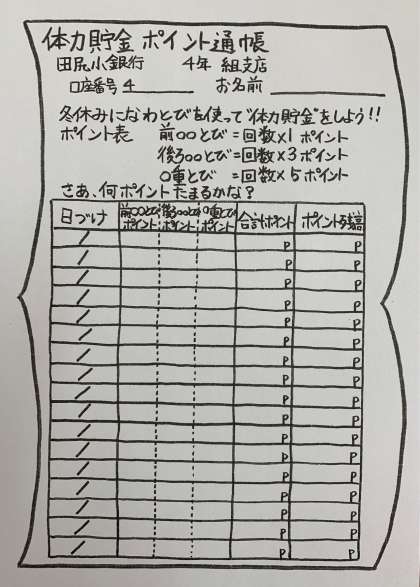 体力貯金 ポイント通帳
田尻小銀行 4年 組支店
口座番号 4 お名前
冬休みになわとびを使って"体力貯金"をしよう!!
ポイント表 前○○とび=回数×1ポイント
後ろ○○とび=回数×3ポイント
○重とび=回数×5ポイント
さあ、何ポイントたまるかな?
日づけ 前○○とびポイント 後ろ○○とびポイント ○重とびポイント 合計ポイント ポイント残高
/ P P
/ P P
/ P P
/ P P
/ P P
/ P P
/ P P
/ P P
/ P P
/ P P
/ P P
/ P P
/ P P
/ P P
/ P P
/ P P
/ P P